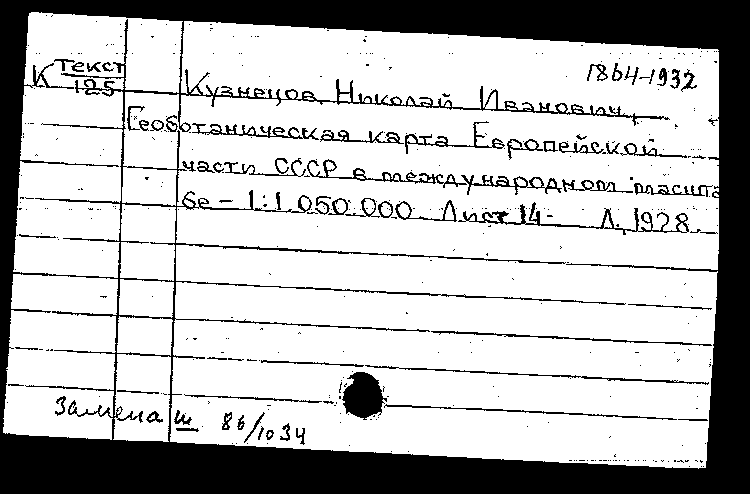 1864-1932
К Текст
125
Кузнецов, Николай Иванович,
Геоботаническая карта Европейской
части СССР в международном масшта
бе - 1:1.050.000. Лист 14- Л., 1928.
Замена ш 86/1034